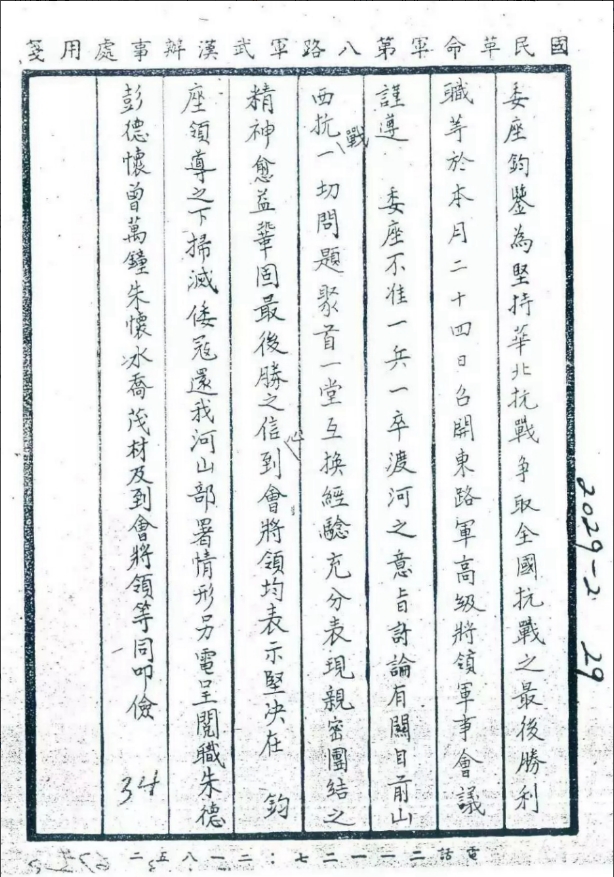 國民革命軍第八路軍武漢辦事處用箋
委座鈞鑒為堅持華北抗戰爭取全國抗戰之最後勝利
職等於本月二十四日召開東路軍高級將領軍事會議
謹遵 委座不准一兵一卒渡河之意旨討論有關目前山
西抗戰一切問題聚首一堂互換經驗充分表現親密團結之
精神愈益鞏固最後勝之信心到會將領均表示堅决在 鈞
座領導之下掃滅倭冦還我河山部署情形另電呈閱職朱德
彭德懷曾萬鐘朱懷冰喬茂材及到會將領等同叩儉
34
2029-2 29
電話二一一二七:二一八五二